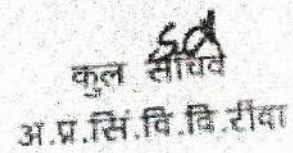 sd
कुल सचिव
अ.प्र.सिं.वि.वि.रीवा